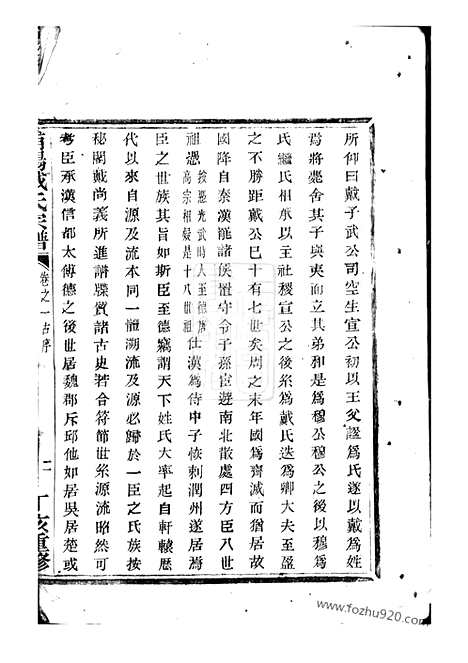 所仰曰戴子武公司空生宣公初以王父諡爲氏遂以戴爲姓
爲將薨舍其子與夷而立其弟和是爲穆公穆公卒以穆爲
氏繼氏相承以主社稷宣公之後系爲戴氏迭爲卿大夫至盈
之不勝距戴公巳十有七世矣周之末年國爲齊滅而猶居故
國降自秦漢罷諸侯置守令子孫宦遊南北散處四方臣八世
祖憑按憑光武時人至德唐高宗相是十八世祖仕漢爲侍中子恢刺潤州遂居焉
臣之世族其旨如斯臣至德竊謂天下姓氏大率起自軒轅歷
代以來自源及流本同一體溯流及源必歸於一臣之氏族按
秘閣戴尚義所進譜牒質諸古史若合符節世系源流昭然可
考臣承漢信都太傅德之後世居魏郡斥邱他如居吳居楚或
戴氏宗譜
卷之一古序
丁亥重修
www.fozhu920.com